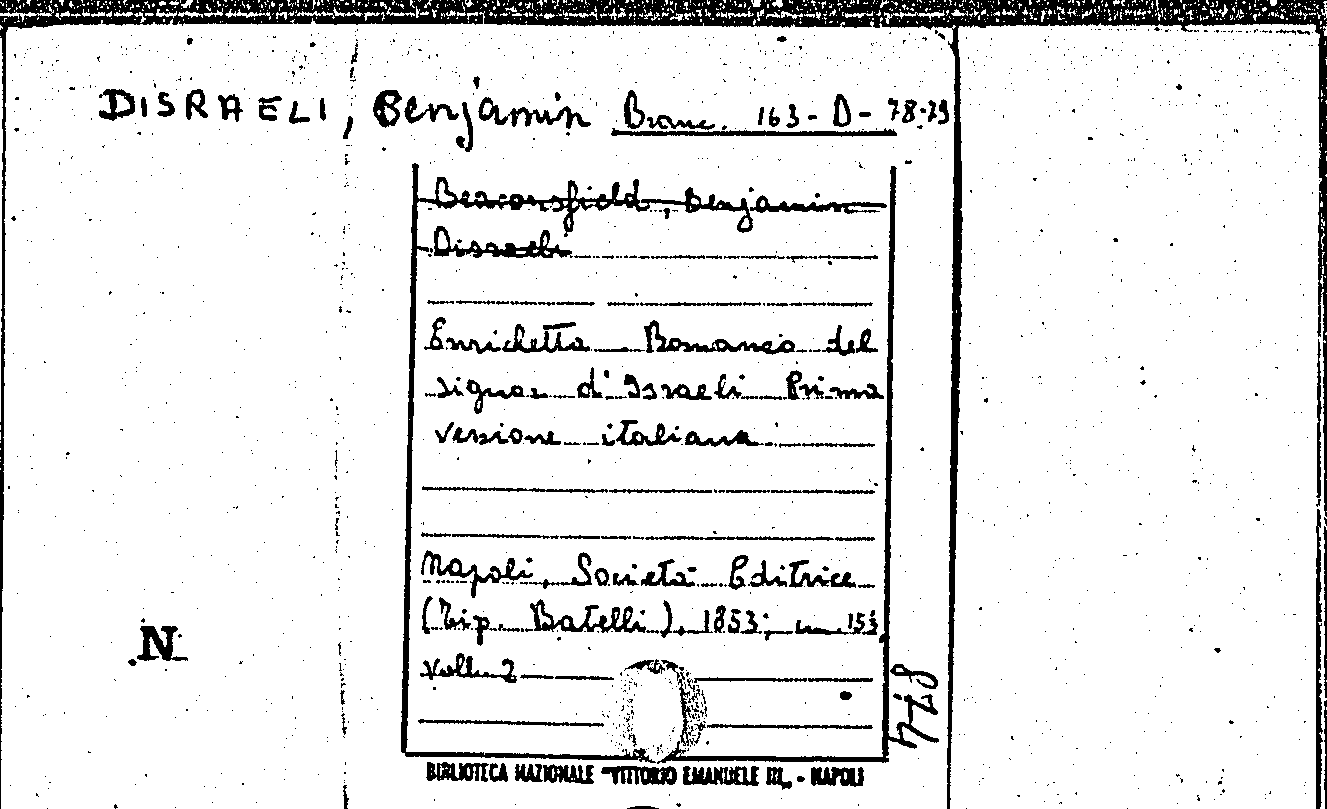 DISRAELI, Benjamin Branc. 163-D-78-79
Beaconsfield, Benjamin
Disraeli
Enrichetta Romanzo del
signor d'Israeli Prima
versione italiana
Napoli, Società Editrice
(Tip. Batelli), 1853; cm. 15½
Voll. 2
N
BIBLIOTECA NAZIONALE "VITTORIO EMANUELE III„ - NAPOLI